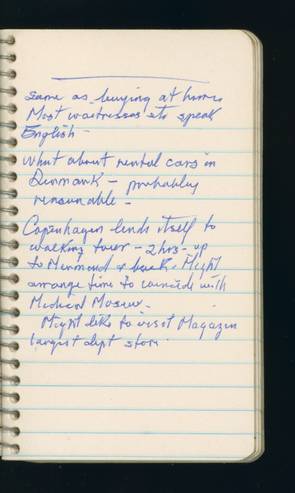 same as buying at home.
Most waitresses etc speak
English -
What about rental cars in
Denmark - probably
reasonable -
Copenhagen lends itself to
walking tour - 2 hrs - up
to Mermaid & back. Might
arrange time to coincide with
Medical Museum.
Might like to visit Magazin
largest dept store.